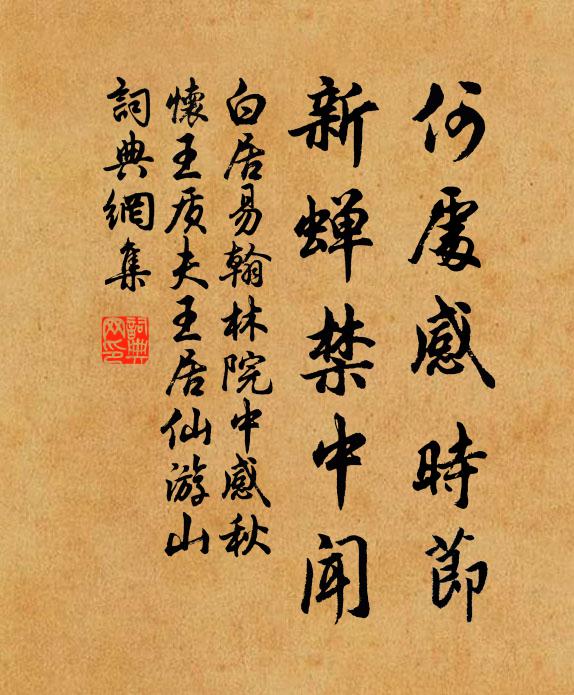 何處感時節
新蝉禁中闻
白居易翰林院中感秋
懷王质夫王居仙游山
詞典網集
詞典
网印